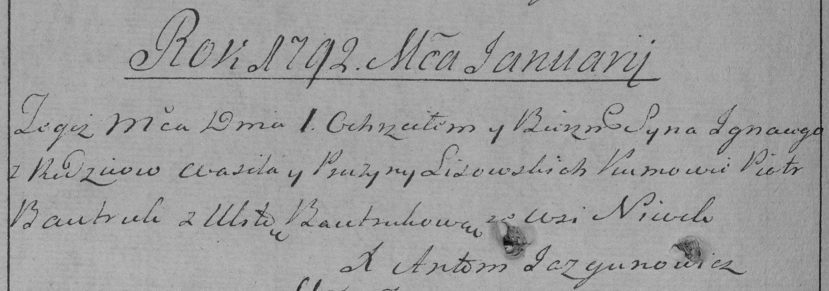 Rok 1792. Mča Januarij
Tegoż Mča Dnia 1. Ochrzciłem y Bierzm Syna Ignacego
z Rodziców Wasila y Pruzyny Lisowskich Kumowie Piotr
Bautruk z Ulstą Bautrukową ze wsi Niwek
X Antoni Jazgunowicz